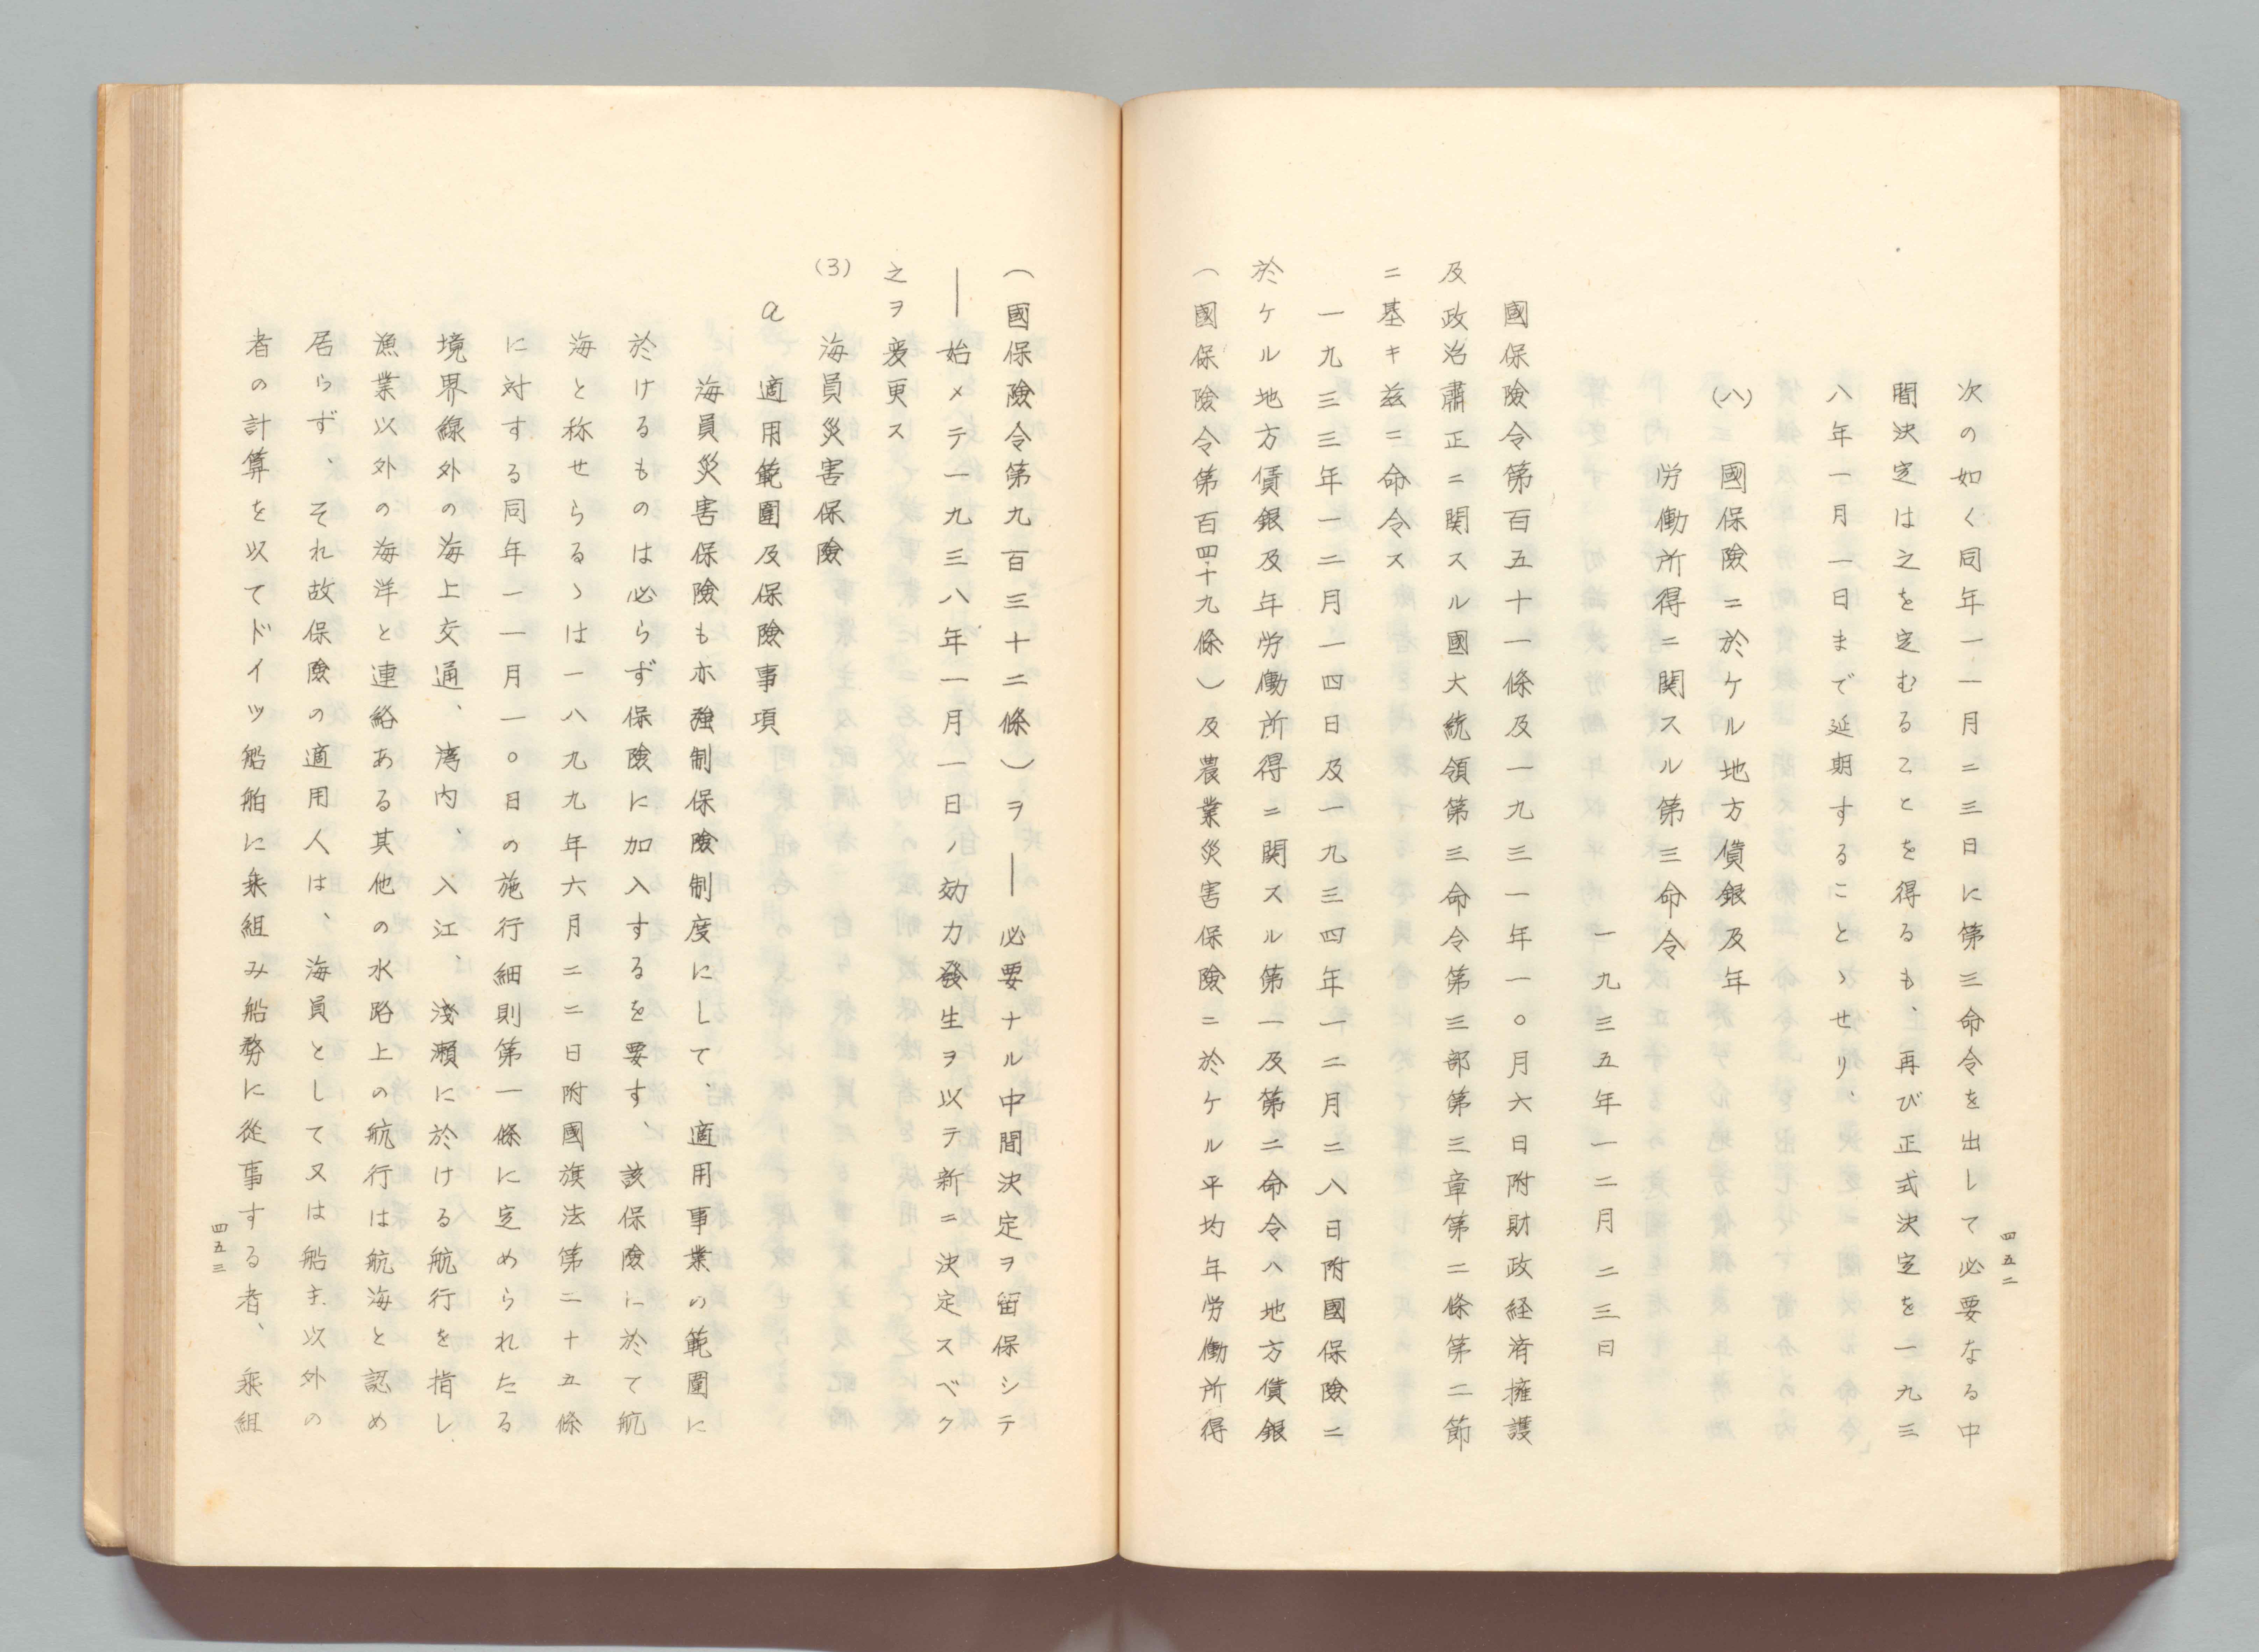 四五二
次の如く同年一一月二三日に第三命令を出して必要なる中
間決定は之を定むることを得るも、再び正式決定を一九三
八年一月一日まで延期することゝせり、
(八) 國保險ニ於ケル地方賃銀及年
労働所得ニ関スル第三命令
一九三五年一二月二三日
國保險令第百五十一條及一九三一年一〇月六日附財政経済擁護
及政治肅正ニ関スル國大統領第三命令第三部第三章第二條第二節
ニ基キ茲ニ命令ス
一九三三年一二月一四日及一九三四年一二月二八日附國保險ニ
於ケル地方賃銀及年労働所得ニ関スル第一及第二命令ハ地方賃銀
(國保險令第百四十九條)及農業災害保險ニ於ケル平均年労働所得
(國保險令第九百三十二條)ヲ――必要ナル中間決定ヲ留保シテ
――始メテ一九三八年一月一日ノ効力發生ヲ以テ新ニ決定スベク
之ヲ変更ス
(3) 海員災害保險
a 適用範圍及保險事項
海員災害保險も亦強制保險制度にして、適用事業の範圍に
於けるものは必らず保險に加入するを要す、該保險に於て航
海と称せらるゝは一八九九年六月二二日附國旗法第二十五條
に対する同年一一月一〇日の施行細則第一條に定められたる
境界線外の海上交通、湾内、入江、淺瀬に於ける航行を指し
漁業以外の海洋と連絡ある其他の水路上の航行は航海と認め
居らず、それ故保險の適用人は、海員として又は船主以外の
者の計算を以てドイツ船舶に乗組み船務に從事する者、乗組
四五三